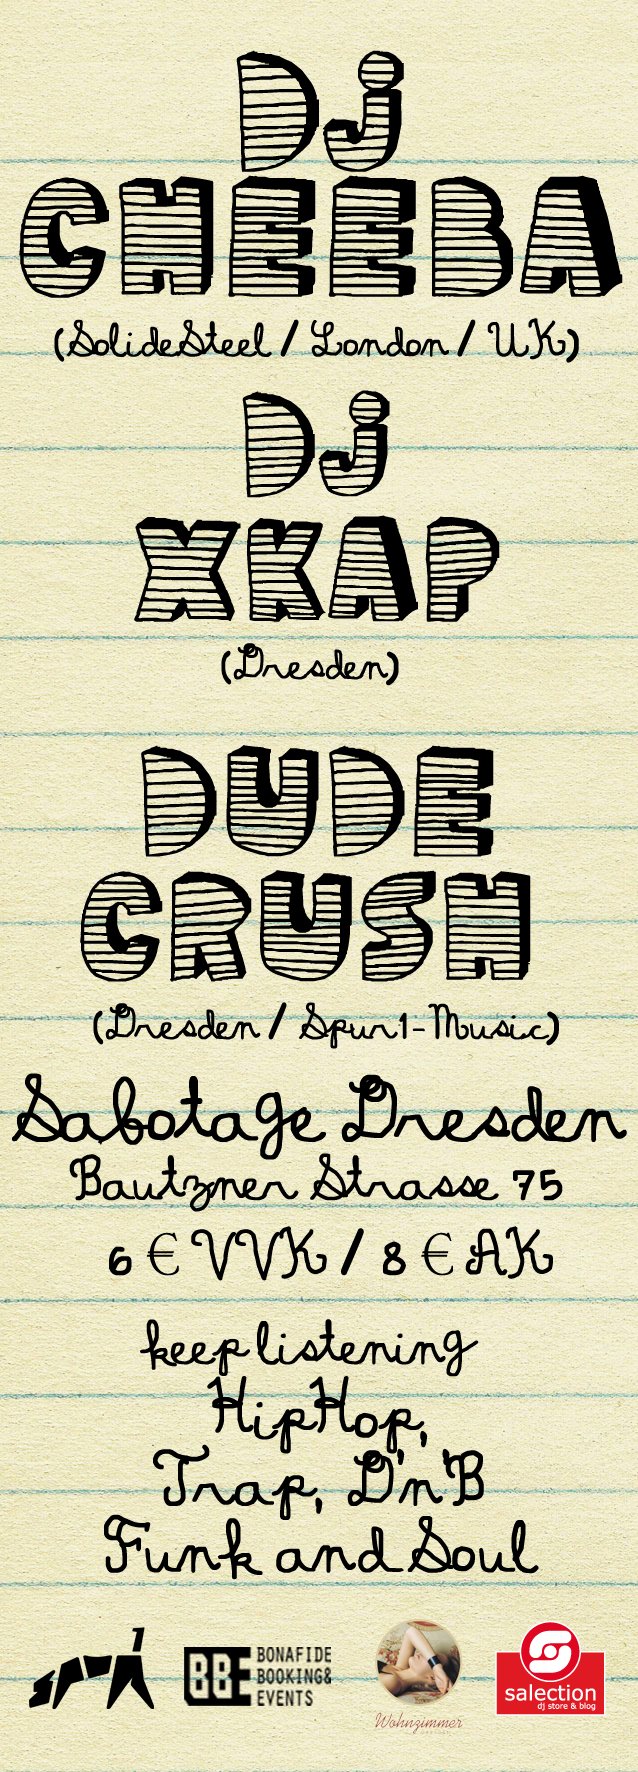 Dj
CHEEBA
(SolideSteel / London / UK)
Dj
XKAP
(Dresden)
DUDE
CRUSH
(Dresden / Spur1-Music)
Sabotage Dresden
Bautzner Strasse 75
6 € VVK / 8 € AK
keep listening
HipHop,
Trap, D'n'B
Funk and Soul
spur1
BBE
BONAFIDE
BOOKING&
EVENTS
Wohnzimmer
salection
dj store & blog